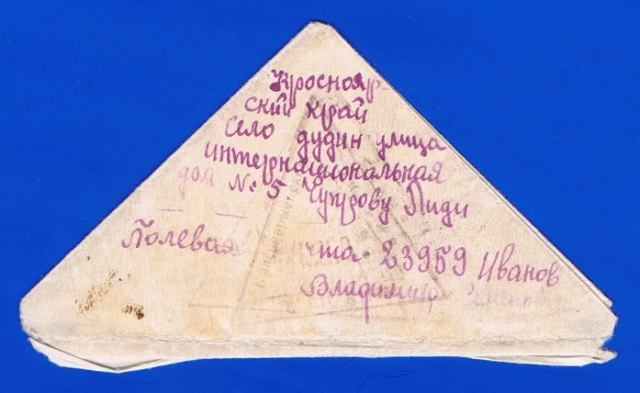 Краснояр-
ский край
село дудин улица
интернациональная
дом №: 5 Чупрову Лиди
Полевая почта 23959 Иванов
Владимир